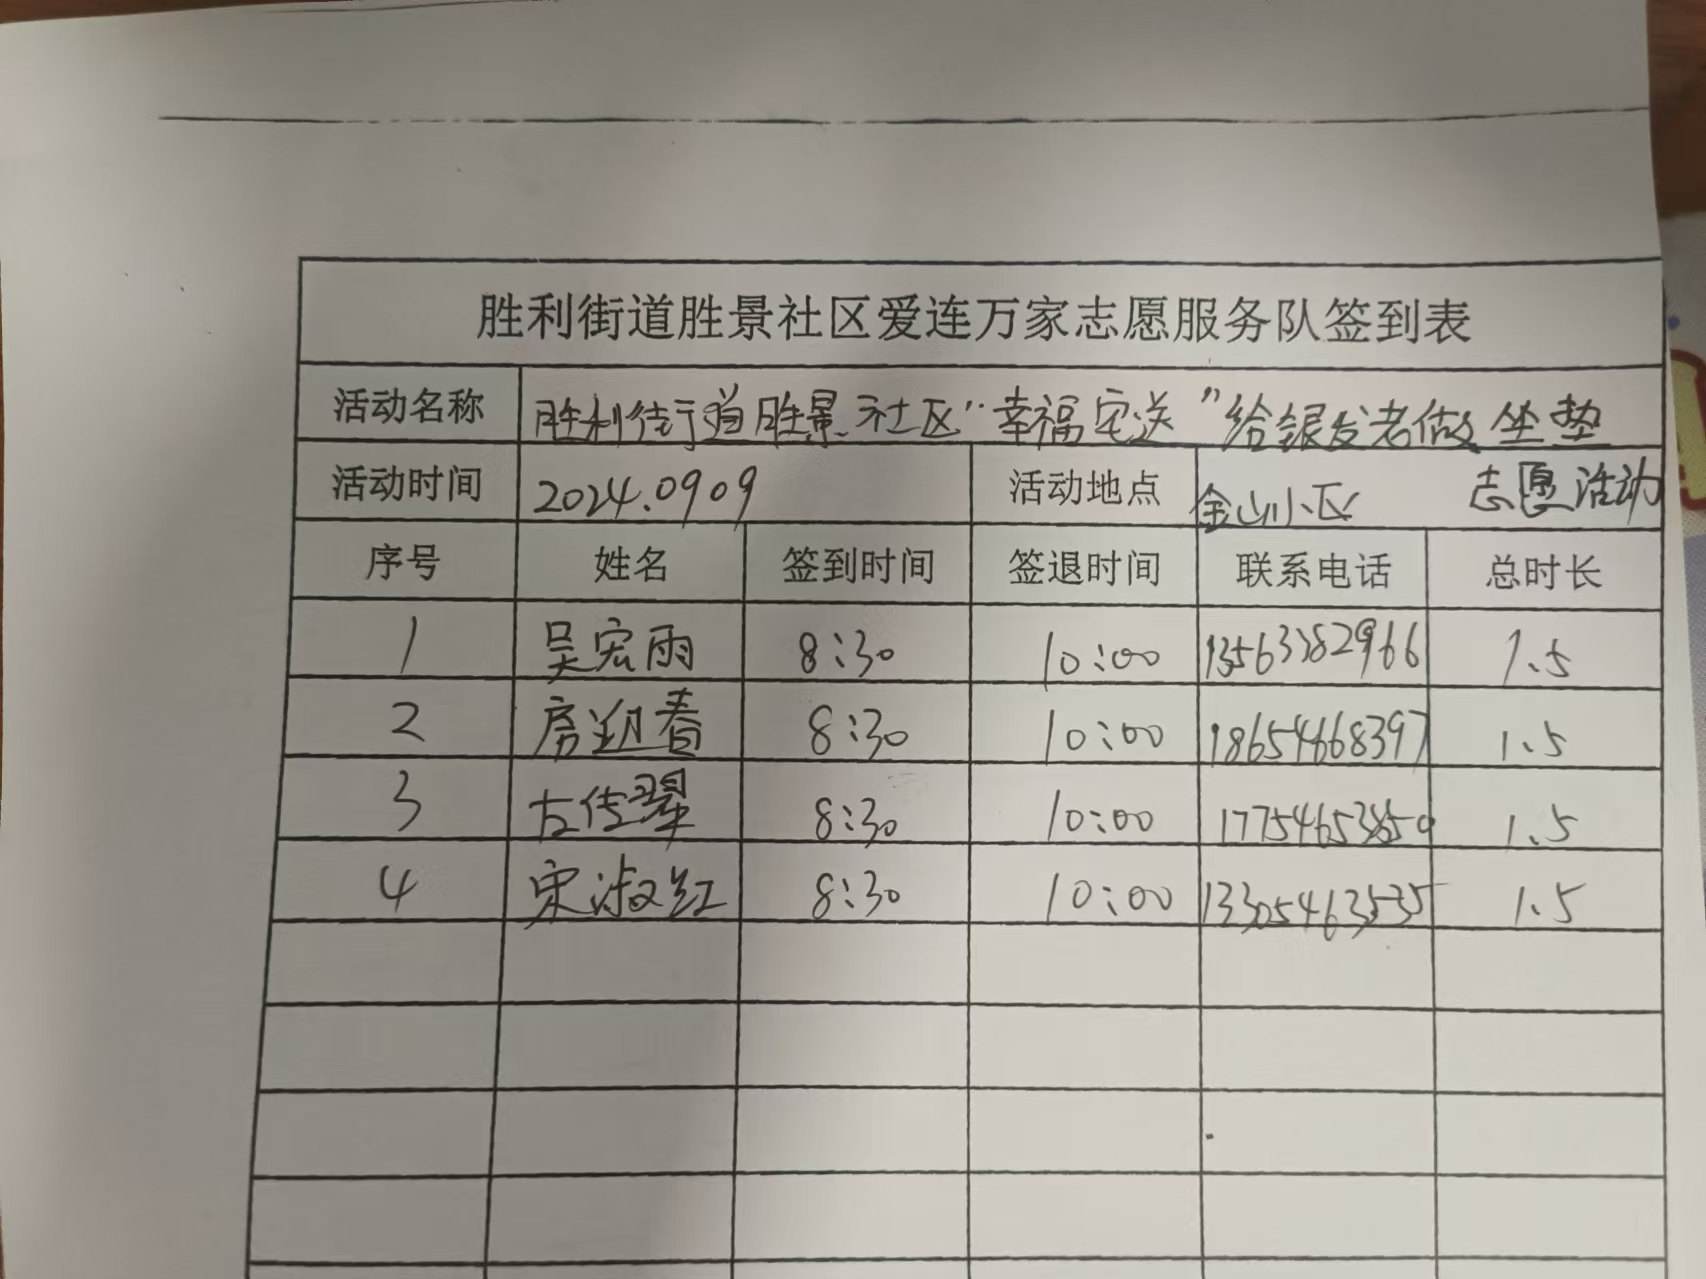 胜利街道胜景社区爱连万家志愿服务队签到表
活动名称 胜利街道胜景社区“幸福宅送”给银发老做坐垫
志愿活动
活动时间 2024.0909 活动地点 金山小区
序号 姓名 签到时间 签退时间 联系电话 总时长
1 吴宏雨 8:30 10:00 13563382966 1.5
2 房迎春 8:30 10:00 18654668397 1.5
3 古传翠 8:30 10:00 1.5
4 宋淑红 8:30 10:00 13305463535 1.5